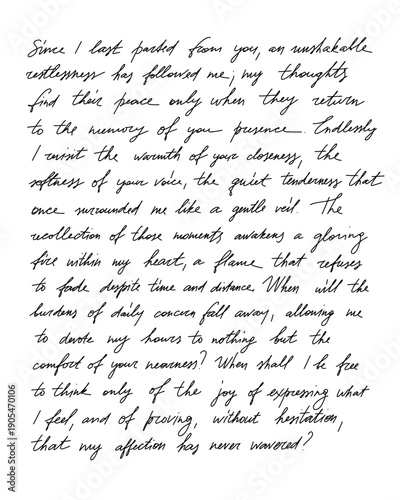 Since I last parted from you, an unshakable
restlessness has followed me; my thoughts
find their peace only when they return
to the memory of you presence. Endlessly
I revisit the warmth of your closeness, the
softness of your voice, the quiet tenderness that
once surrounded me like a gentle veil. The
recollection of those moments awakens a gloving
fire within my heart, a flame that refuses
to fade despite time and distance. When will the
burdens of daily concern fall away, allowing me
to devote my hours to nothing but the
comfort of your nearness? When shall I be free
to think only of the joy of expressing what
I feel, and of proving, without hesitation,
that my affection has never wavered?
Adobe Stock | #1905470106